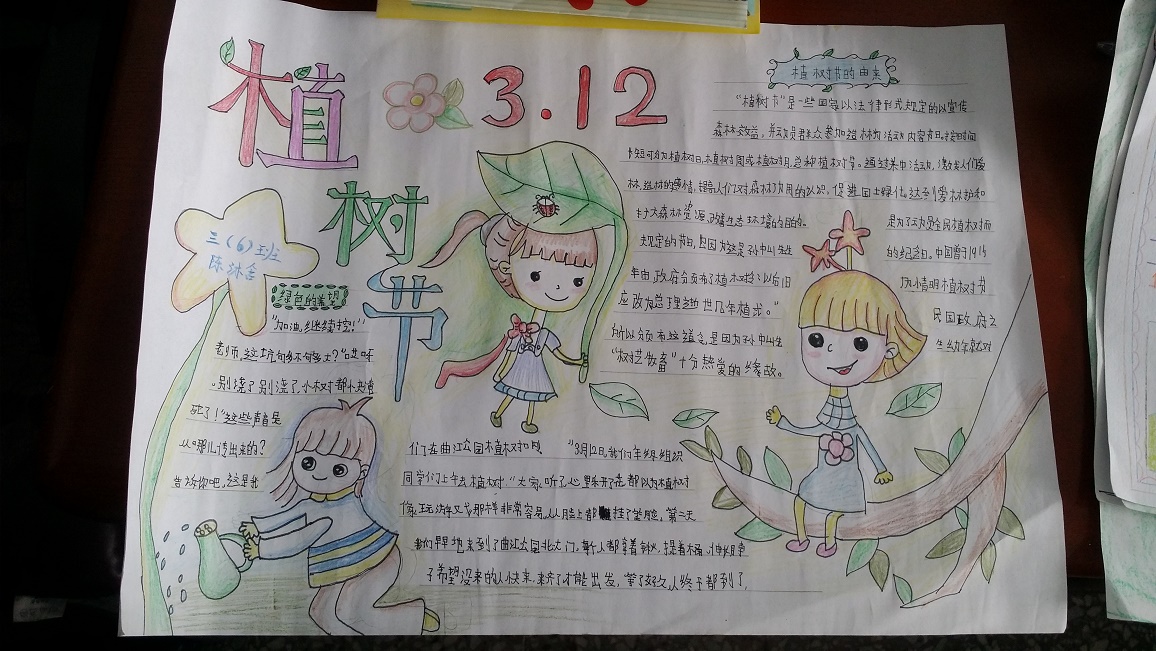 植树节
3.12
三(6)班
陈沐含
植树节的由来
"植树节"是一些国家以法律形式规定的以宣传
森林效益，并动员群众参加造林为活动内容节日。按时间
长短可分为植树日、植树周或植树月，总称植树节。通过这种活动，激发人们爱
林、造林的感情，提高人们对森林功用的认识，促进国土绿化，达到爱林护林和
扩大森林资源、改善生态环境的目的。
是为了动员全民植树而
规定的节日，是因为这是孙中山先生
的纪念日。中国曾于1915
年由政府公布了植树令以后旧
历清明植树节
应改为总理逝世几年植式。"
民国政府之
所以颁布这道令，是因为孙中山生
生幼年就对
"树艺牧畜"十分热爱的缘故。
绿色的希望
"加油，继续挖！"
老师，这坑够不够大？"哎呀
别浇了别浇了，小树都
死了！"这些声音是
从哪儿传出来的？
告诉你吧，这是我
们在曲江公园植树时
"3月12日，我们年级组织
同学们上午去植树。"大家听了心里乐开了花，都以为植树
像玩游戏那样非常容易，人人脸上都挂了笑脸，第二天
我们早早地来到了曲江公园北大门，每个人都拿着铁锹，提着水桶，
子希望没来的人快来，来齐了才能出发，等了好久人终于都到了，